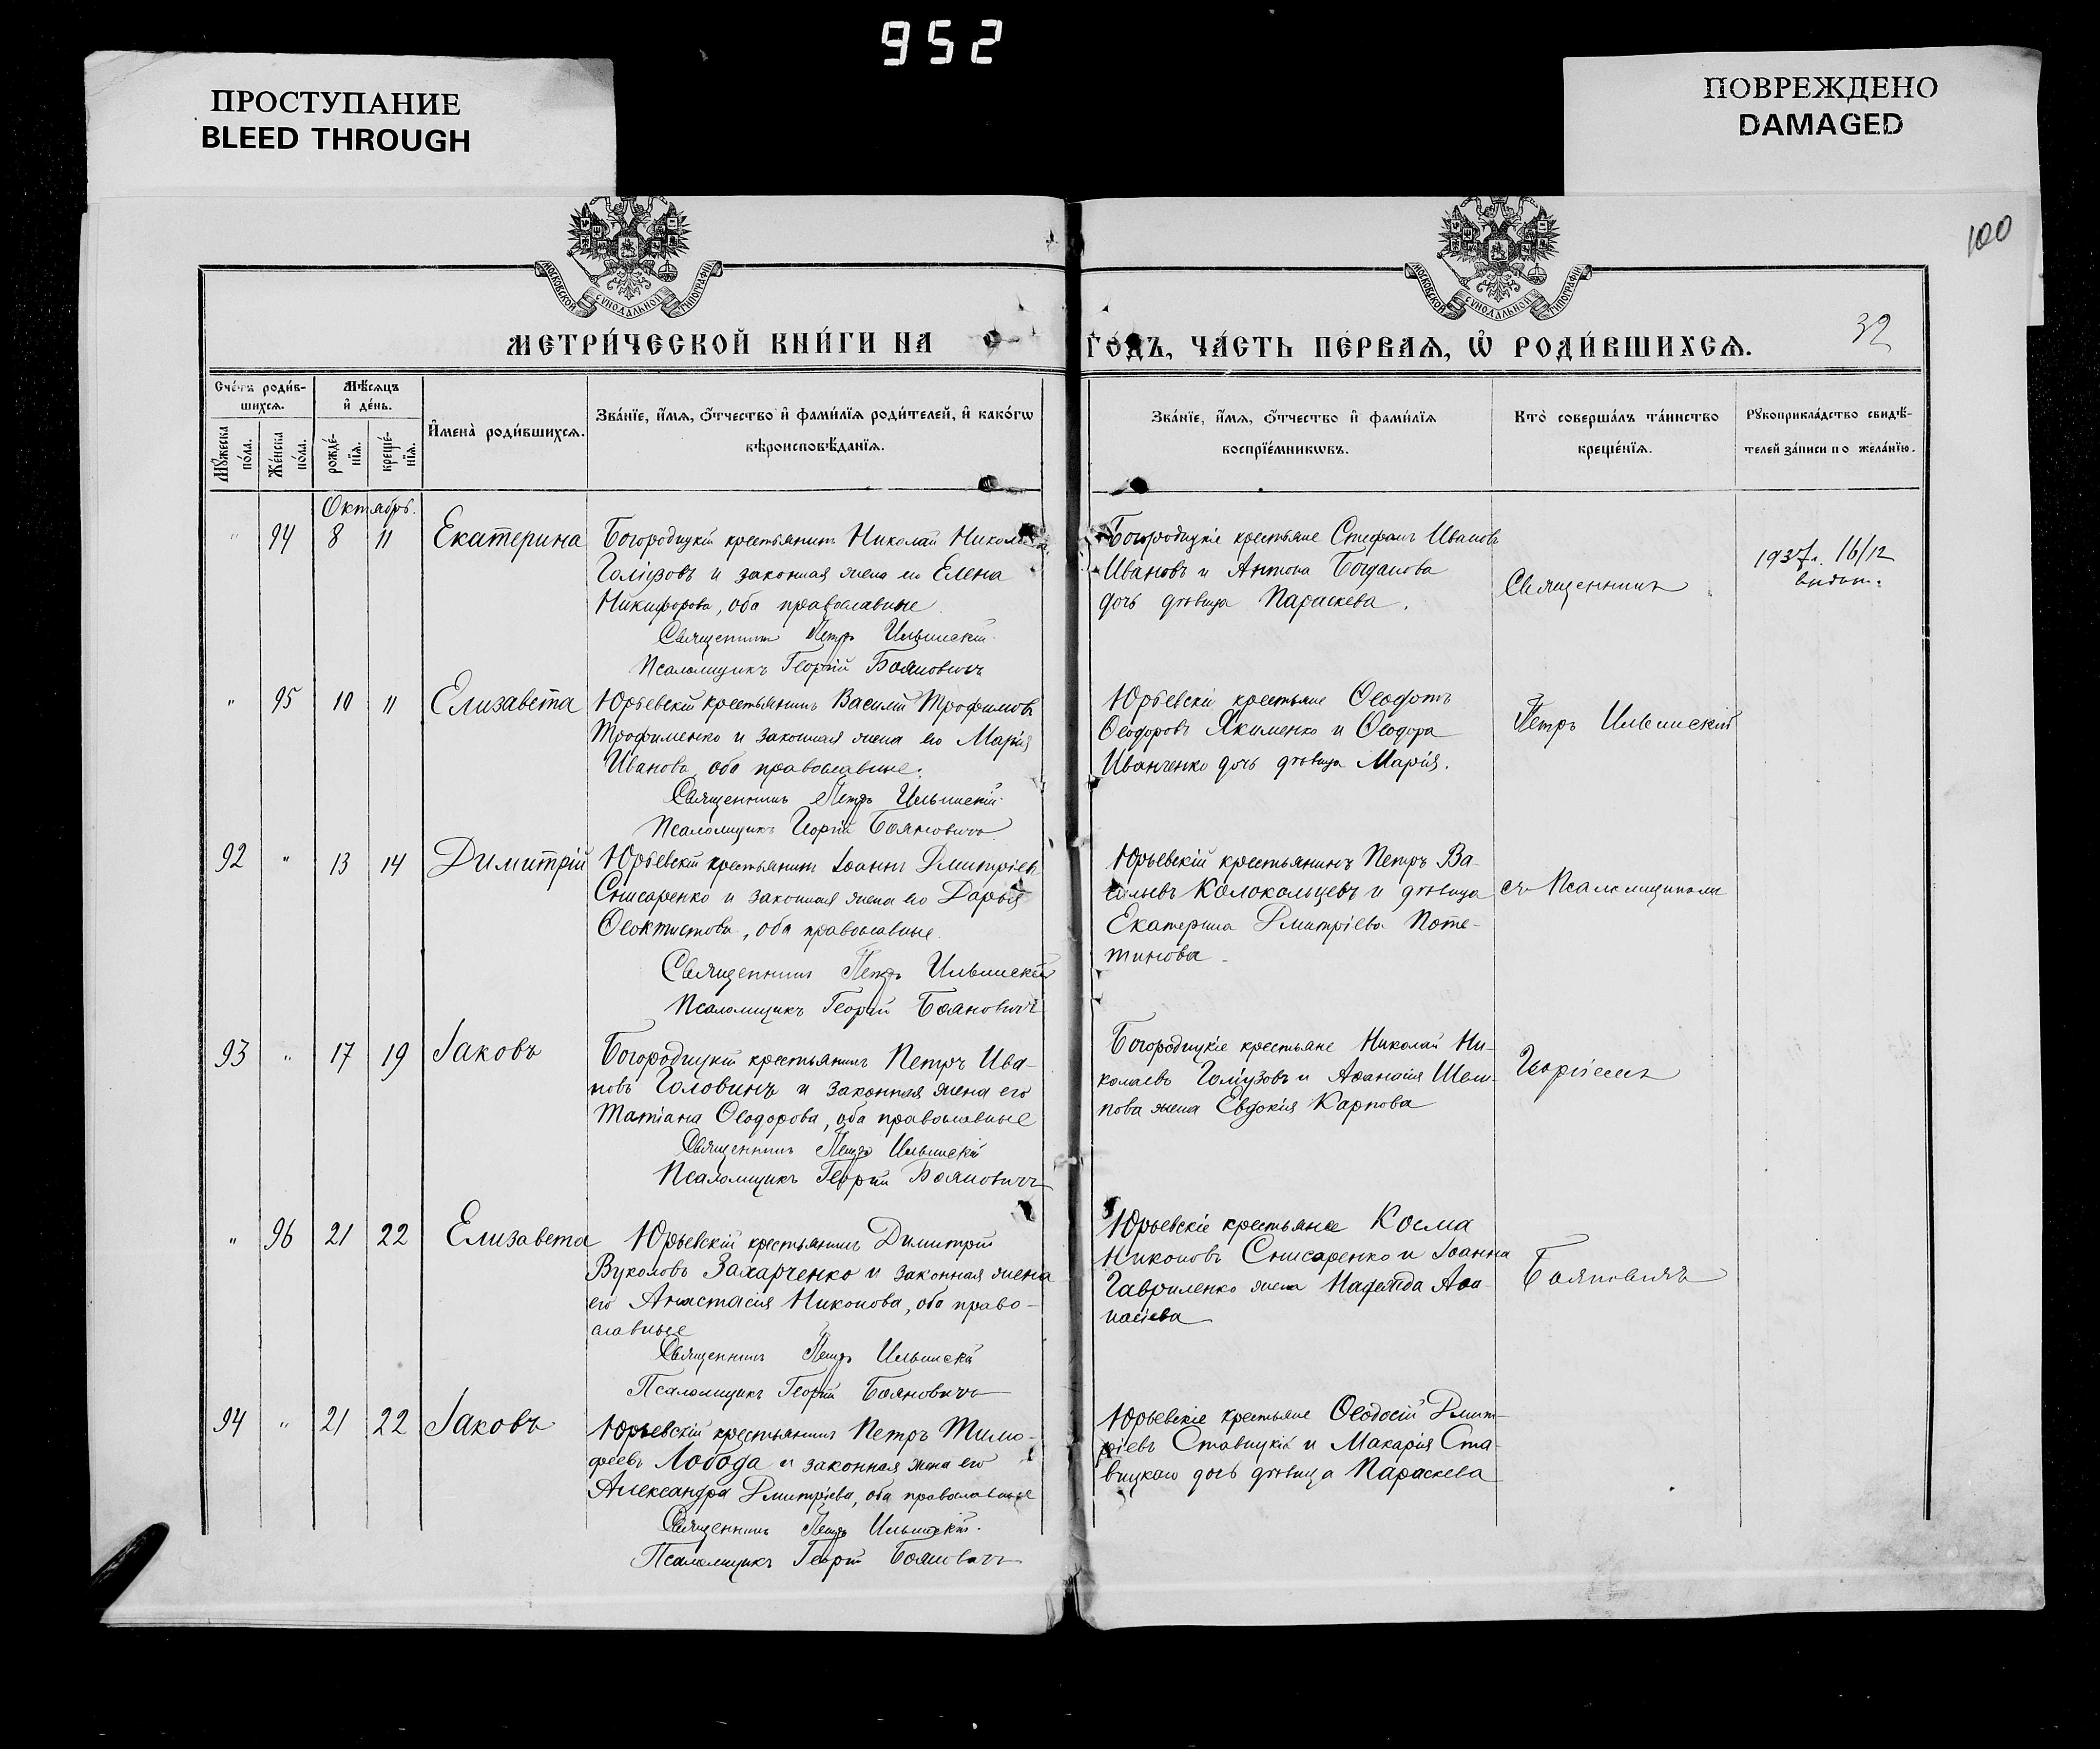 952
ПРОСТУПАНИЕ
BLEED THROUGH
ПОВРЕЖДЕНО
DAMAGED
100
МОСКОВСКОЙ СѴНОДАЛЬНОЙ ТИПОГРАФІИ
МОСКОВСКОЙ СѴНОДАЛЬНОЙ ТИПОГРАФІИ
МЕТРИ́ЧЕСКОЙ КНИ́ГИ НА
ГО́ДЪ, ЧА́СТЬ ПЕ́РВАѦ, Ѡ҆ РОДИ́ВШИХСѦ.
32
Сче́тъ роди́в-
шихсѧ.
Мꙋ́жеска по́ла.
Же́нска по́ла.
Мѣ́сѧцъ
и҆ де́нь.
рожде́-
нїѧ.
креще́-
нїѧ.
И҆мена̀ роди́вшихсѧ.
Зва́нїе, и҆́мѧ, ѻ҆́тчество и҆ фами́лїѧ роди́телей, и҆ како́гѡ
вѣроисповѣ́данїѧ.
Зва́нїе, и҆́мѧ, ѻ҆́тчество и҆ фами́лїѧ
воспрїе́мникѡвъ.
Кто̀ соверша́лъ та́инство
креще́нїѧ.
Рꙋкоприкла́дство свидѣ́-
телей за́писи по жела́нїю.
Октябрь.
" 94 8 11 Екатерина
Богородицкій крестьянинъ Николай
Голіузовъ и законная жена его Елена
Никифорова, оба православные
Священникъ Петръ Ильинскій
Псаломщикъ Георгій Бояновичъ
Богородицкіе крестьяне Стефанъ Ивановъ
Ивановъ и Антона Богданова
дочь дѣвица Параскева.
Священникъ
1937г. 16/12
выдан.
" 95 10 11 Елизавета
Юрьевскій крестьянинъ Василій Трофимовъ
Трофименко и законная жена его Марія
Иванова, оба православные.
Священникъ Петръ Ильинскій
Псаломщикъ Георгій Бояновичъ
Юрьевскіе крестьяне Ѳеодотъ
Ѳеодоровъ Якименко и Ѳеодора
Иванченко дочь дѣвица Марія.
Петръ Ильинскій
92 " 13 14 Димитрій
Юрьевскій крестьянинъ Іоаннъ Дмитріевъ
Снисаренко и законная жена его Дарья
Ѳеоктистова, оба православные.
Священникъ Петръ Ильинскій
Псаломщикъ Георгій Бояновичъ
Юрьевскій крестьянинъ Петръ Ва-
сильевъ Колокольцевъ и дѣвица
Екатерина Дмитріева Поте-
тинова
съ Псаломщикомъ
93 " 17 19 Іаковъ
Богородицкій крестьянинъ Петръ Ива-
новъ Головинъ и законная жена его
Татіана Ѳеодорова, оба православные
Священникъ Петръ Ильинскій
Псаломщикъ Георгій Бояновичъ
Богородицкіе крестьяне Николай Ни-
колаевъ Голіузовъ и Аѳанасія
жена Евдокія Карпова
Георгіемъ
" 96 21 22 Елизавета
Юрьевскій крестьянинъ Димитрій
Вуколовъ Захарченко и законная жена
его Анастасія Никонова, оба право-
славные
Священникъ Петръ Ильинскій
Псаломщикъ Георгій Бояновичъ
Юрьевскіе крестьяне Косма
Никоновъ Снисаренко и Іоанна
Гавриленко жена Надежда Аѳа-
насіева
Бояновичъ
94 " 21 22 Іаковъ
Юрьевскій крестьянинъ Петръ Тимо-
феевъ Лобода и законная жена его
Александра Дмитріева, оба православные
Священникъ Петръ Ильинскій.
Псаломщикъ Георгій Бояновичъ
Юрьевскіе крестьяне Ѳеодосій Дмит-
ріевъ Ставицкій и Макарія Ста-
вицкаго дочь дѣвица Параскева